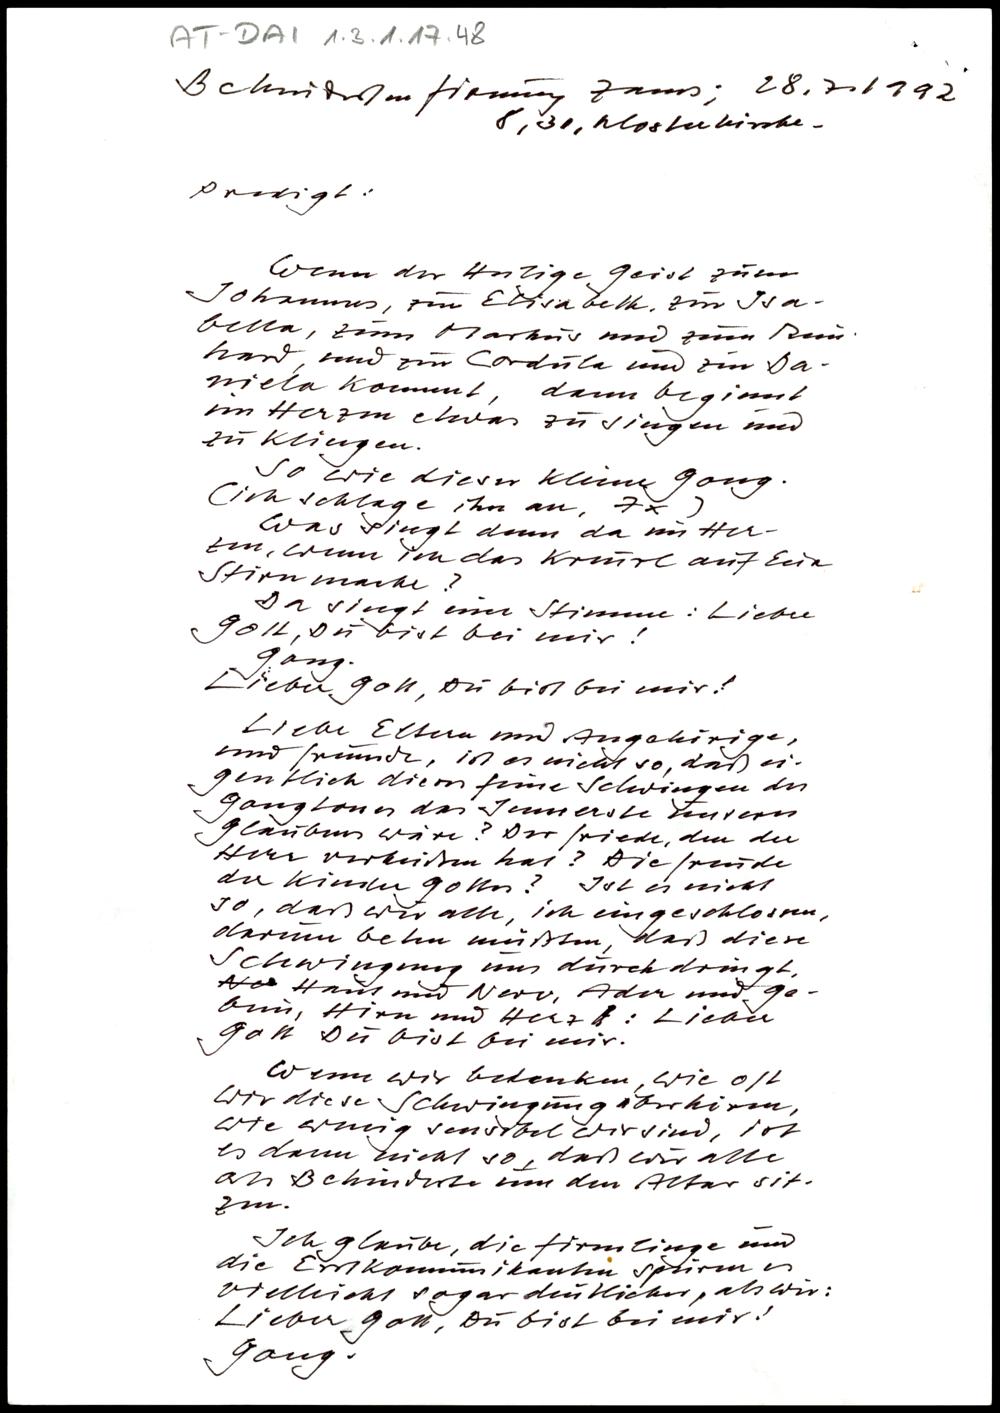 AT-DAI 1.3.1.17.48
Behindertenfirmung Zams; 28.7.1992
8,30, Klosterkirche -
Predigt:
Wenn der Heilige Geist zum
Johannes, zur Elisabeth, zur Isa-
bella, zum Markus und zum Rein-
hard, und zur Cordula und zur Da-
niela kommt, dann beginnt
im Herzen etwas zu singen und
zu klingen.
So wie dieser kleine Gong.
(ich schlage ihn an, 7x)
Was singt denn da im Her-
zen, wenn ich das Kreuzl auf Eure
Stirn mache?
Da singt eine Stimme: Lieber
Gott, Du bist bei mir!
Gong.
Lieber Gott, Du bist bei mir!
Liebe Eltern und Angehörige,
und Freunde, ist es nicht so, daß ei-
gentlich dieses feine Schwingen des
Gongtones das Innerste unseres
Glaubens wäre? Der Friede, den der
Herr verheißen hat? Die Freude
der Kinder Gottes? Ist es nicht
so, daß wir alle, ich eingeschlossen,
darum beten müßten, daß diese
Schwingung uns durchdringt,
Haut und Nerv, Ader und Ge-
bein, Hirn und Herz: Lieber
Gott Du bist bei mir.
Wenn wir bedenken, wie oft
wir diese Schwingung überhören,
wie wenig sensibel wir sind, ist
es dann nicht so, daß wir alle
als Behinderte um den Altar sit-
zen.
Ich glaube, die Firmlinge und
die Erstkommunikanten spüren es
vielleicht sogar deutlicher, als wir:
Lieber Gott, Du bist bei mir!
Gong.